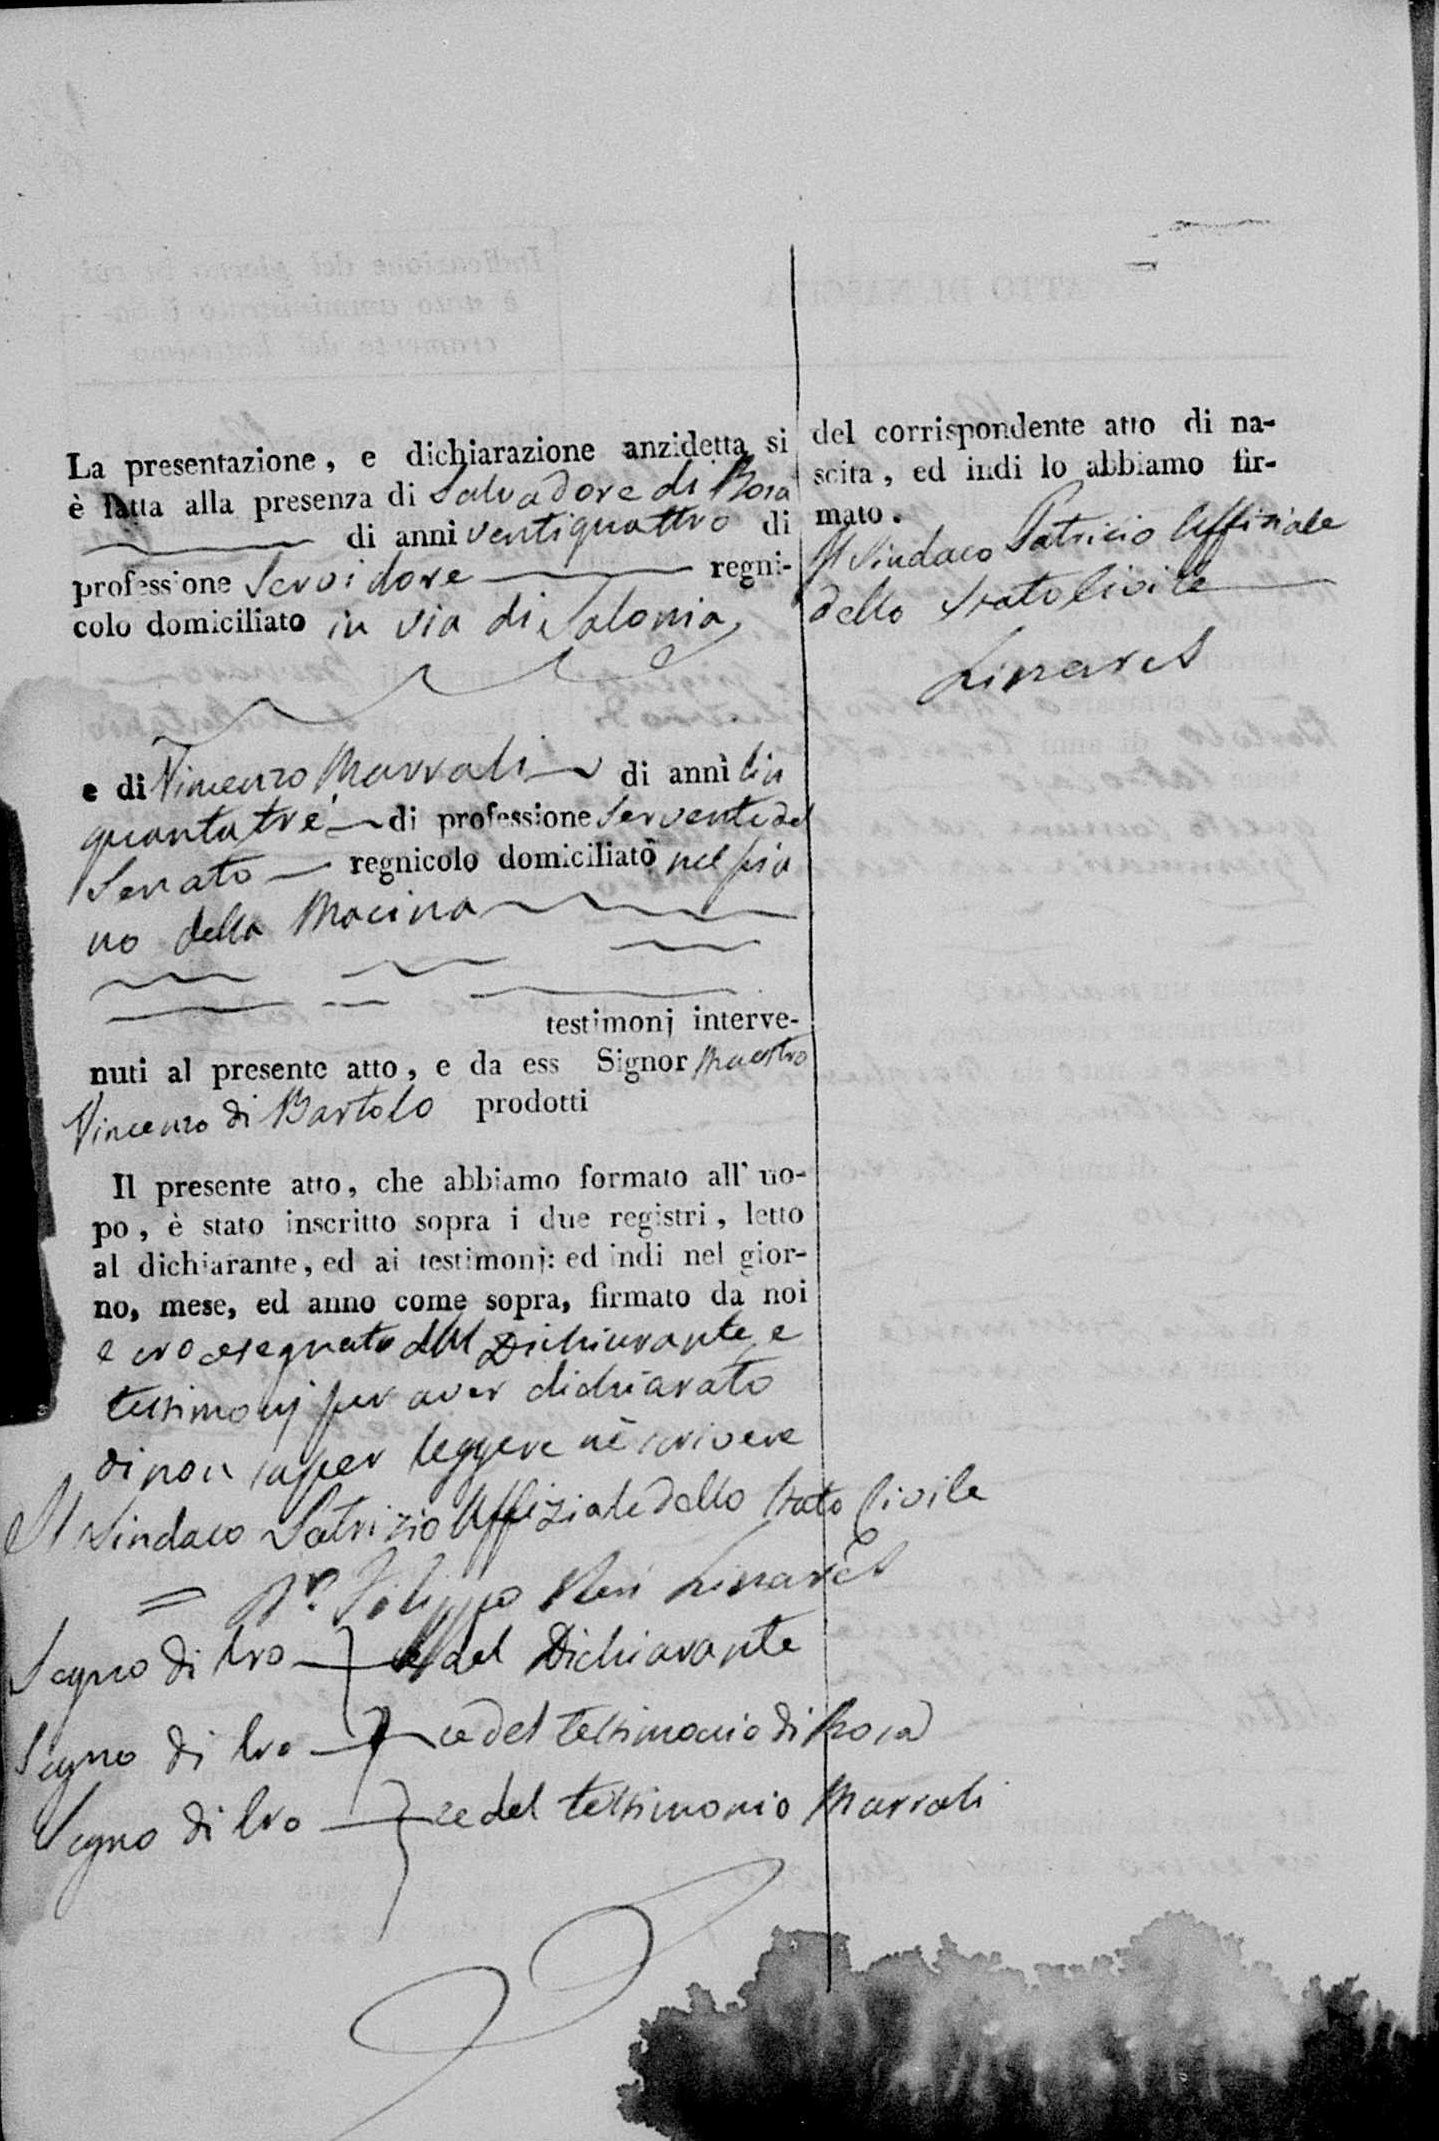 La presentazione, e dichiarazione anzidetta si
è fatta alla presenza di Salvadore di Rosa
di anni ventiquattro di
professione Servidore regni-
colo domiciliato in via di Salonia
e di Vincenzo Marrali di anni Cin
quantatrè di professione Servente del
Senato regnicolo domiciliato nel pia
no della Macina
testimonj interve-
nuti al presente atto, e da ess Signor Maestro
Vincenzo di Bartolo prodotti
Il presente atto, che abbiamo formato all' uo-
po, è stato inscritto sopra i due registri, letto
al dichiarante, ed ai testimonj: ed indi nel gior-
no, mese, ed anno come sopra, firmato da noi
e crocesegnato dal Dichiarante, e
testimonj per aver dichiarato
di non saper leggere nè scrivere
Il Sindaco Patrizio Uffiziale dello Stato Civile
= Dr. Filippo Neri Linares
Segno di Cro ce del Dichiarante
Segno di Cro ce del testimonio di Rosa
Segno di Cro ce del testimonio Marrali
del corrispondente atto di na-
scita, ed indi lo abbiamo fir-
mato.
Il Sindaco Patricio Uffiziale
dello Stato Civile
Linares